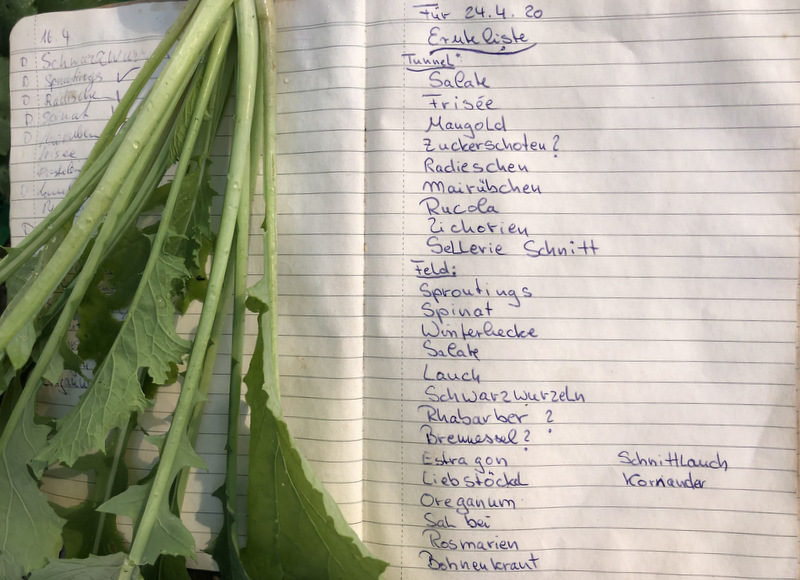 16.4
D Schwarzwur
D Sproutings
D Radische
D Spinat
D
Für 24.4.20
Ernteliste
Tunnel:
Salate
Frisée
Mangold
Zuckerschoten?
Radieschen
Mairübchen
Rucola
Zichorien
Sellerie Schnitt
Feld:
Sproutings
Spinat
Winterhecke
Salate
Lauch
Schwarzwurzeln
Rhabarber ?
Brennessel?
Estragon Schnittlauch
Liebstöckl Koriander
Oreganum
Salbei
Rosmarien
Bohnenkraut